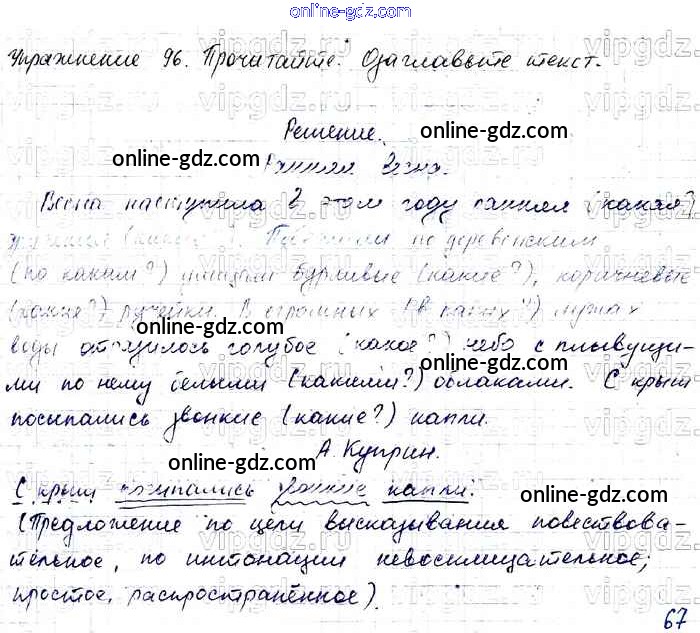 online-gdz.com
Упражнение 96. Прочитайте. Озаглавьте текст.
Решение.
online-gdz.com
Ранняя весна.
online-gdz.com
Весна наступила в этом году ранняя (какая?)
по деревенским
online-gdz.com
(по каким?) улицам бурливые (какие?), коричневые
(какие?) ручейки. В огромных (в каких?) лужах
online-gdz.com
воды отразилось голубое (какое?) небо с плывущи-
ми по нему белыми (какими?) облаками. С крыш
online-gdz.com
посыпались звонкие (какие?) капли.
А. Куприн.
online-gdz.com
С крыш посыпались звонкие капли.
online-gdz.com
(Предложение по цели высказывания повествова-
тельное, по интонации невосклицательное;
простое, распространённое).
67